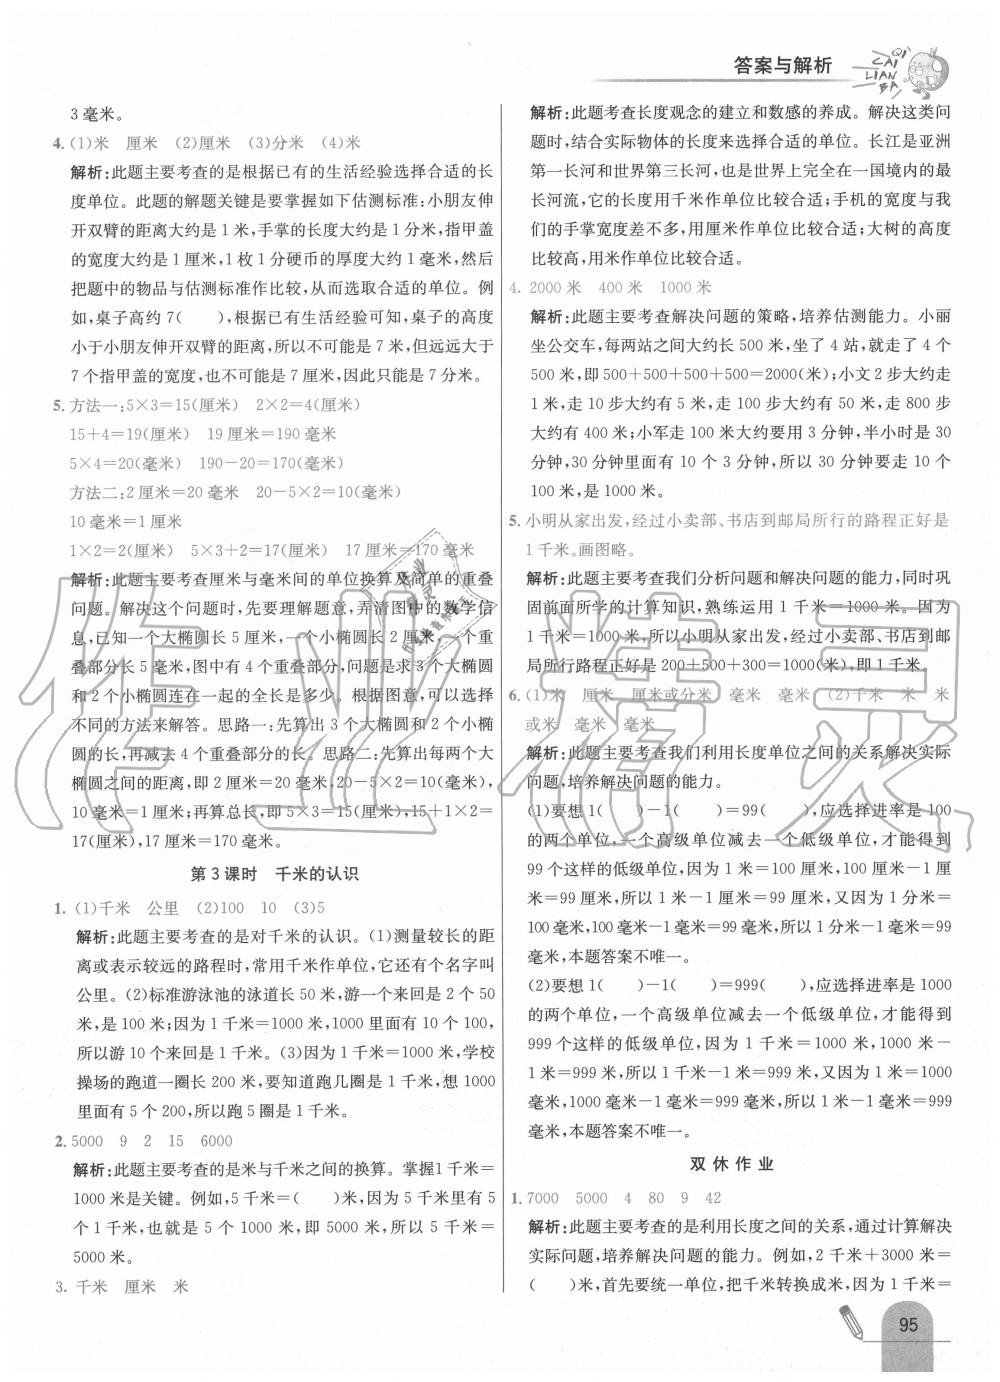 答案与解析
QI CAI LIAN BA
3 毫米。
4. (1)米　厘米　(2)厘米　(3)分米　(4)米
解析:此题主要考查的是根据已有的生活经验选择合适的长
度单位。此题的解题关键是要掌握如下估测标准:小朋友伸
开双臂的距离大约是 1 米,手掌的长度大约是 1 分米,指甲盖
的宽度大约是 1 厘米,1 枚 1 分硬币的厚度大约 1 毫米,然后
把题中的物品与估测标准作比较,从而选取合适的单位。例
如,桌子高约 7(　　),根据已有生活经验可知,桌子的高度
小于小朋友伸开双臂的距离,所以不可能是 7 米,但远远大于
7 个指甲盖的宽度,也不可能是 7 厘米,因此只能是 7 分米。
5. 方法一:5×3=15(厘米)　2×2=4(厘米)
15+4=19(厘米)　19 厘米=190 毫米
5×4=20(毫米)　190-20=170(毫米)
方法二:2 厘米=20 毫米　20-5×2=10(毫米)
10 毫米=1 厘米
1×2=2(厘米)　5×3+2=17(厘米)　17 厘米=170 毫米
解析:此题主要考查厘米与毫米间的单位换算及简单的重叠
问题。解决这个问题时,先要理解题意,弄清图中的数学信
息,已知一个大椭圆长 5 厘米,一个小椭圆长 2 厘米,一个重
叠部分长 5 毫米,图中有 4 个重叠部分,问题是求 3 个大椭圆
和 2 个小椭圆连在一起的全长是多少。根据图意,可以选择
不同的方法来解答。思路一:先算出 3 个大椭圆和 2 个小椭
圆的长,再减去 4 个重叠部分的长。思路二:先算出每两个大
椭圆之间的距离,即 2 厘米=20 毫米,20-5×2=10(毫米),
10 毫米=1 厘米;再算总长,即 5×3=15(厘米),15+1×2=
17(厘米),17 厘米=170 毫米。
第 3 课时　千米的认识
1. (1)千米　公里　(2)100　10　(3)5
解析:此题主要考查的是对千米的认识。(1)测量较长的距
离或表示较远的路程时,常用千米作单位,它还有个名字叫
公里。(2)标准游泳池的泳道长 50 米,游一个来回是 2 个 50
米,是 100 米;因为 1 千米=1000 米,1000 里面有 10 个 100,
所以游 10 个来回是 1 千米。(3)因为 1 千米=1000 米,学校
操场的跑道一圈长 200 米,要知道跑几圈是 1 千米,想 1000
里面有 5 个 200,所以跑 5 圈是 1 千米。
2. 5000　9　2　15　6000
解析:此题主要考查的是米与千米之间的换算。掌握1千米=
1000 米是关键。例如,5 千米=(　　)米,因为 5 千米里有 5
个 1 千米,也就是 5 个 1000 米,即 5000 米,所以 5 千米=
5000 米。
3. 千米　厘米　米
解析:此题考查长度观念的建立和数感的养成。解决这类问
题时,结合实际物体的长度来选择合适的单位。长江是亚洲
第一长河和世界第三长河,也是世界上完全在一国境内的最
长河流,它的长度用千米作单位比较合适;手机的宽度与我
们的手掌宽度差不多,用厘米作单位比较合适;大树的高度
比较高,用米作单位比较合适。
4. 2000 米　400 米　1000 米
解析:此题主要考查解决问题的策略,培养估测能力。小丽
坐公交车,每两站之间大约长 500 米,坐了 4 站,就走了 4 个
500 米,即 500+500+500+500=2000(米);小文 2 步大约走
1 米,走 10 步大约有 5 米,走 100 步大约有 50 米,走 800 步
大约有 400 米;小军走 100 米大约要用 3 分钟,半小时是 30
分钟,30 分钟里面有 10 个 3 分钟,所以 30 分钟要走 10 个
100 米,是 1000 米。
5. 小明从家出发,经过小卖部、书店到邮局所行的路程正好是
1 千米。画图略。
解析:此题主要考查我们分析问题和解决问题的能力,同时巩
固前面所学的计算知识,熟练运用 1 千米=1000 米。因为
1 千米=1000 米,所以小明从家出发,经过小卖部、书店到邮
局所行路程正好是 200+500+300=1000(米),即 1 千米。
6. (1)米　厘米　厘米或分米　毫米　毫米　(2)千米　米　米
或米　毫米　毫米
解析:此题主要考查我们利用长度单位之间的关系解决实际
问题,培养解决问题的能力。
(1)要想 1(　　)-1(　　)=99(　　),应选择进率是 100
的两个单位,一个高级单位减去一个低级单位,才能得到
99 个这样的低级单位,因为 1 米=100 厘米,100 厘米-1 厘
米=99 厘米,所以 1 米-1 厘米=99 厘米,又因为 1 分米=
100 毫米,100 毫米-1 毫米=99 毫米,所以 1 分米-1 毫米=99
毫米,本题答案不唯一。
(2)要想 1(　　)-1(　　)=999(　　),应选择进率是 1000
的两个单位,一个高级单位减去一个低级单位,才能得到
999 个这样的低级单位,因为 1 千米=1000 米,1000 米-
1 米=999 米,所以 1 千米-1 米=999 米,又因为 1 米=1000
毫米,1000 毫米-1 毫米=999 毫米,所以 1 米-1 毫米=999
毫米,本题答案不唯一。
双休作业
1. 7000　5000　4　80　9　42
解析:此题主要考查的是利用长度之间的关系,通过计算解决
实际问题,培养解决问题的能力。例如,2 千米+3000 米=
(　　)米,首先要统一单位,把千米转换成米,因为 1 千米=
95
作业精灵